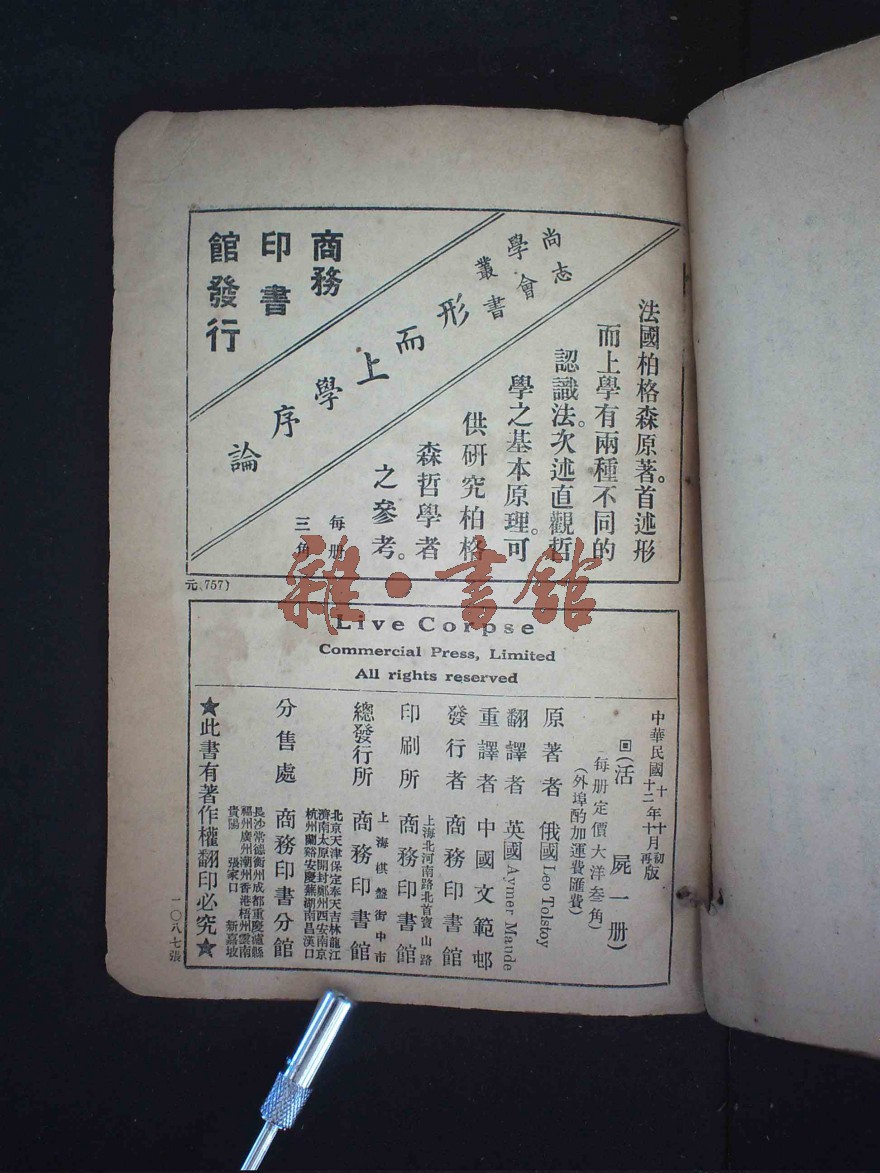 法國柏格森原著。首述形
而上學有兩種不同的
認識法。次述直觀哲
學之基本原理。可
供研究柏格
森哲學者
之參考。
每册
三角
尚志
學會
叢書
形而上學序論
商務
印書
館發行
元(757)
雜·書館
Live Corpse
Commercial Press, Limited
All rights reserved
中華民國十年十月初版
十二年十月再版
回(活屍一册)
(每册定價大洋叁角)
(外埠酌加運費匯費)
原著者 俄國Leo Tolstoy
翻譯者 英國Aymer Maude
重譯者 中國文範邨
發行者 商務印書館
上海北河南路北首寶山路
印刷所 商務印書館
上海棋盤街中市
總發行所 商務印書館
北京天津保定奉天吉林龍江
濟南太原開封鄭州西安南京
杭州蘭谿安慶蕪湖南昌漢口
分售處 商務印書分館
長沙常德衡州成都重慶瀘縣
福州廣州潮州香港梧州雲南
貴陽 張家口 新嘉坡
★此書有著作權翻印必究★
一〇八七張